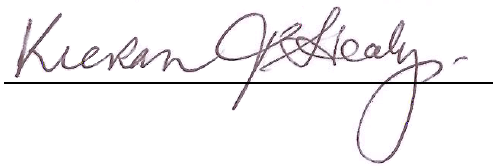 Kieran J Healy.